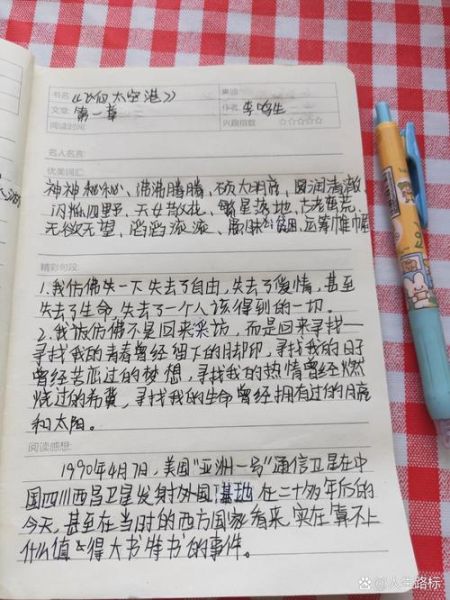 书名 《飞向太空港》
文章 第一章 作者 李鸣生
阅读时间 兴趣指数 ☆☆☆☆☆
名人名言:
优美词汇:
神神秘秘、沸沸腾腾、硕大明亮、圆润清澈
闪烁四野、天女散花、繁星落地、古老蛮荒
无欲无望、滔滔滚滚、 运筹帷幄
精彩句段
1.我仿佛失一下失去了自由,失去了爱情,甚至
失去了生命,失去了一个人该得到的一切。
2.我诙仿佛不是回来采访,而是回来寻找——
寻找我的青春曾经留下的脚印,寻找我的日子
曾经苦恋过的梦想,寻找我的热情曾经燃
烧过的希冀,寻找我的生命曾经拥有过的月亮
和太阳。
阅读感想:
1990年4月7日,美国"亚洲一号"通信卫星在中
国四川西昌卫星发射外国基地 在二十多年后的
今天,甚至在当时的西方国家看来,实在算不上
什么值得大书特书的事件。
人生路标